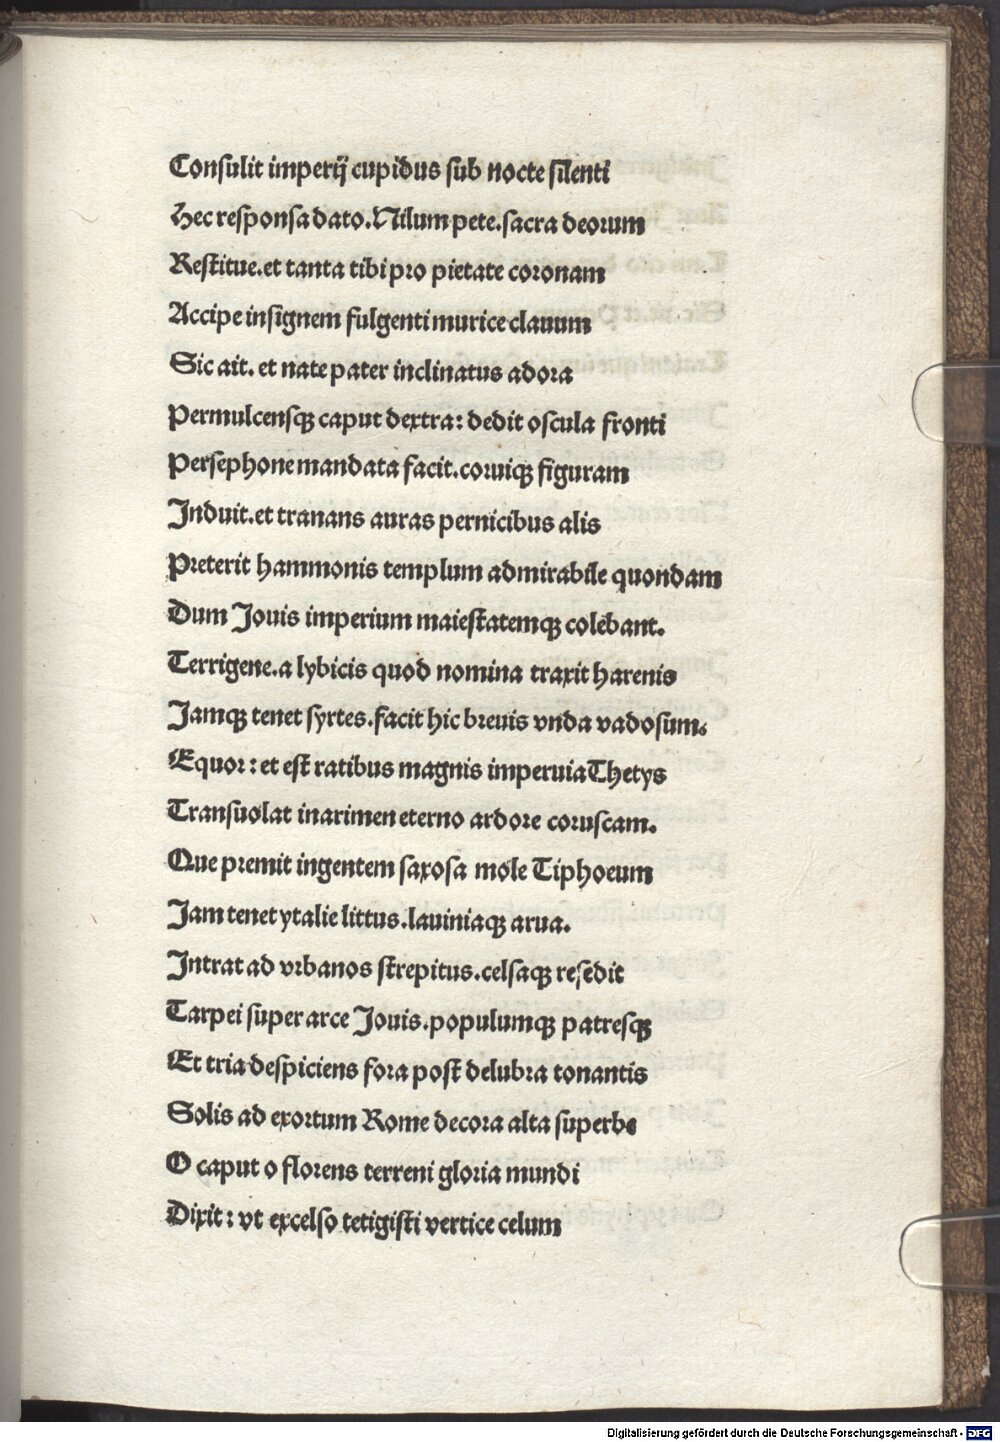 Consulit imperij cupidus sub nocte silenti
Hec responsa dato. Nilum pete. sacra deorum
Restitue. et tanta tibi pro pietate coronam
Accipe insignem fulgenti murice clauum
Sic ait. et nate pater inclinatus adora
Permulcensqꝫ caput dextra: dedit oscula fronti
Persephone mandata facit. coruiqꝫ figuram
Induit. et tranans auras pernicibus alis
Preterit hammonis templum admirabile quondam
Dum Jouis imperium maiestatemqꝫ colebant.
Terrigene. a lybicis quod nomina traxit harenis
Jamqꝫ tenet syrtes. facit hic breuis vnda vadosum.
Equor: et est ratibus magnis imperuia Thetys
Transuolat inarimen eterno ardore coruscam.
Que premit ingentem saxosa mole Tiphoeum
Jam tenet ytalie littus. lauiniaqꝫ arua.
Intrat ad vrbanos strepitus. celsaqꝫ resedit
Tarpei super arce Jouis. populumqꝫ patresqꝫ
Et tria despiciens fora post delubra tonantis
Solis ad exortum Rome decora alta superbe
O caput o florens terreni gloria mundi
Dixit: vt excelso tetigisti vertice celum
Digitalisierung gefördert durch die Deutsche Forschungsgemeinschaft - DFG